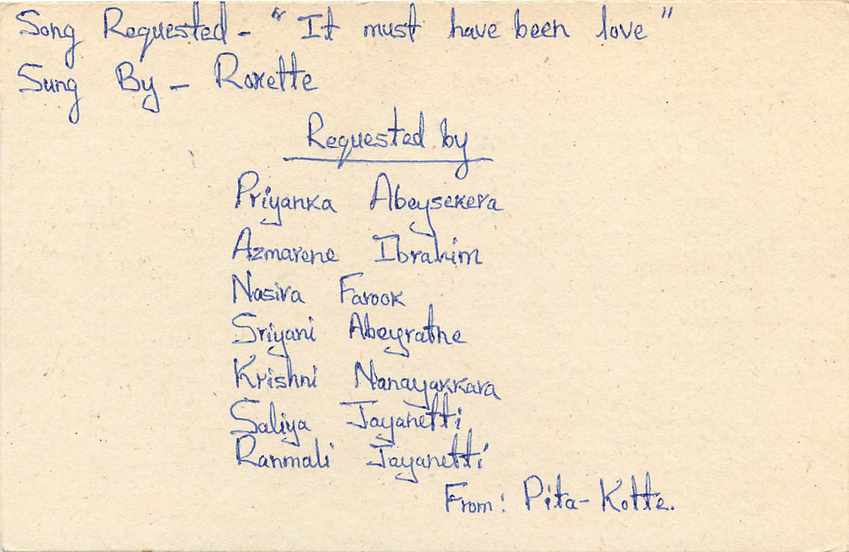 Song Requested - "It must have been love"
Sung By - Roxette
Requested by
Priyanka Abeysekera
Azmarene Ibrahim
Nasira Farook
Sriyani Abeyratne
Krishni Nanayakkara
Saliya Jayanetti
Ranmali Jayanetti
From: Pita-Kotte.